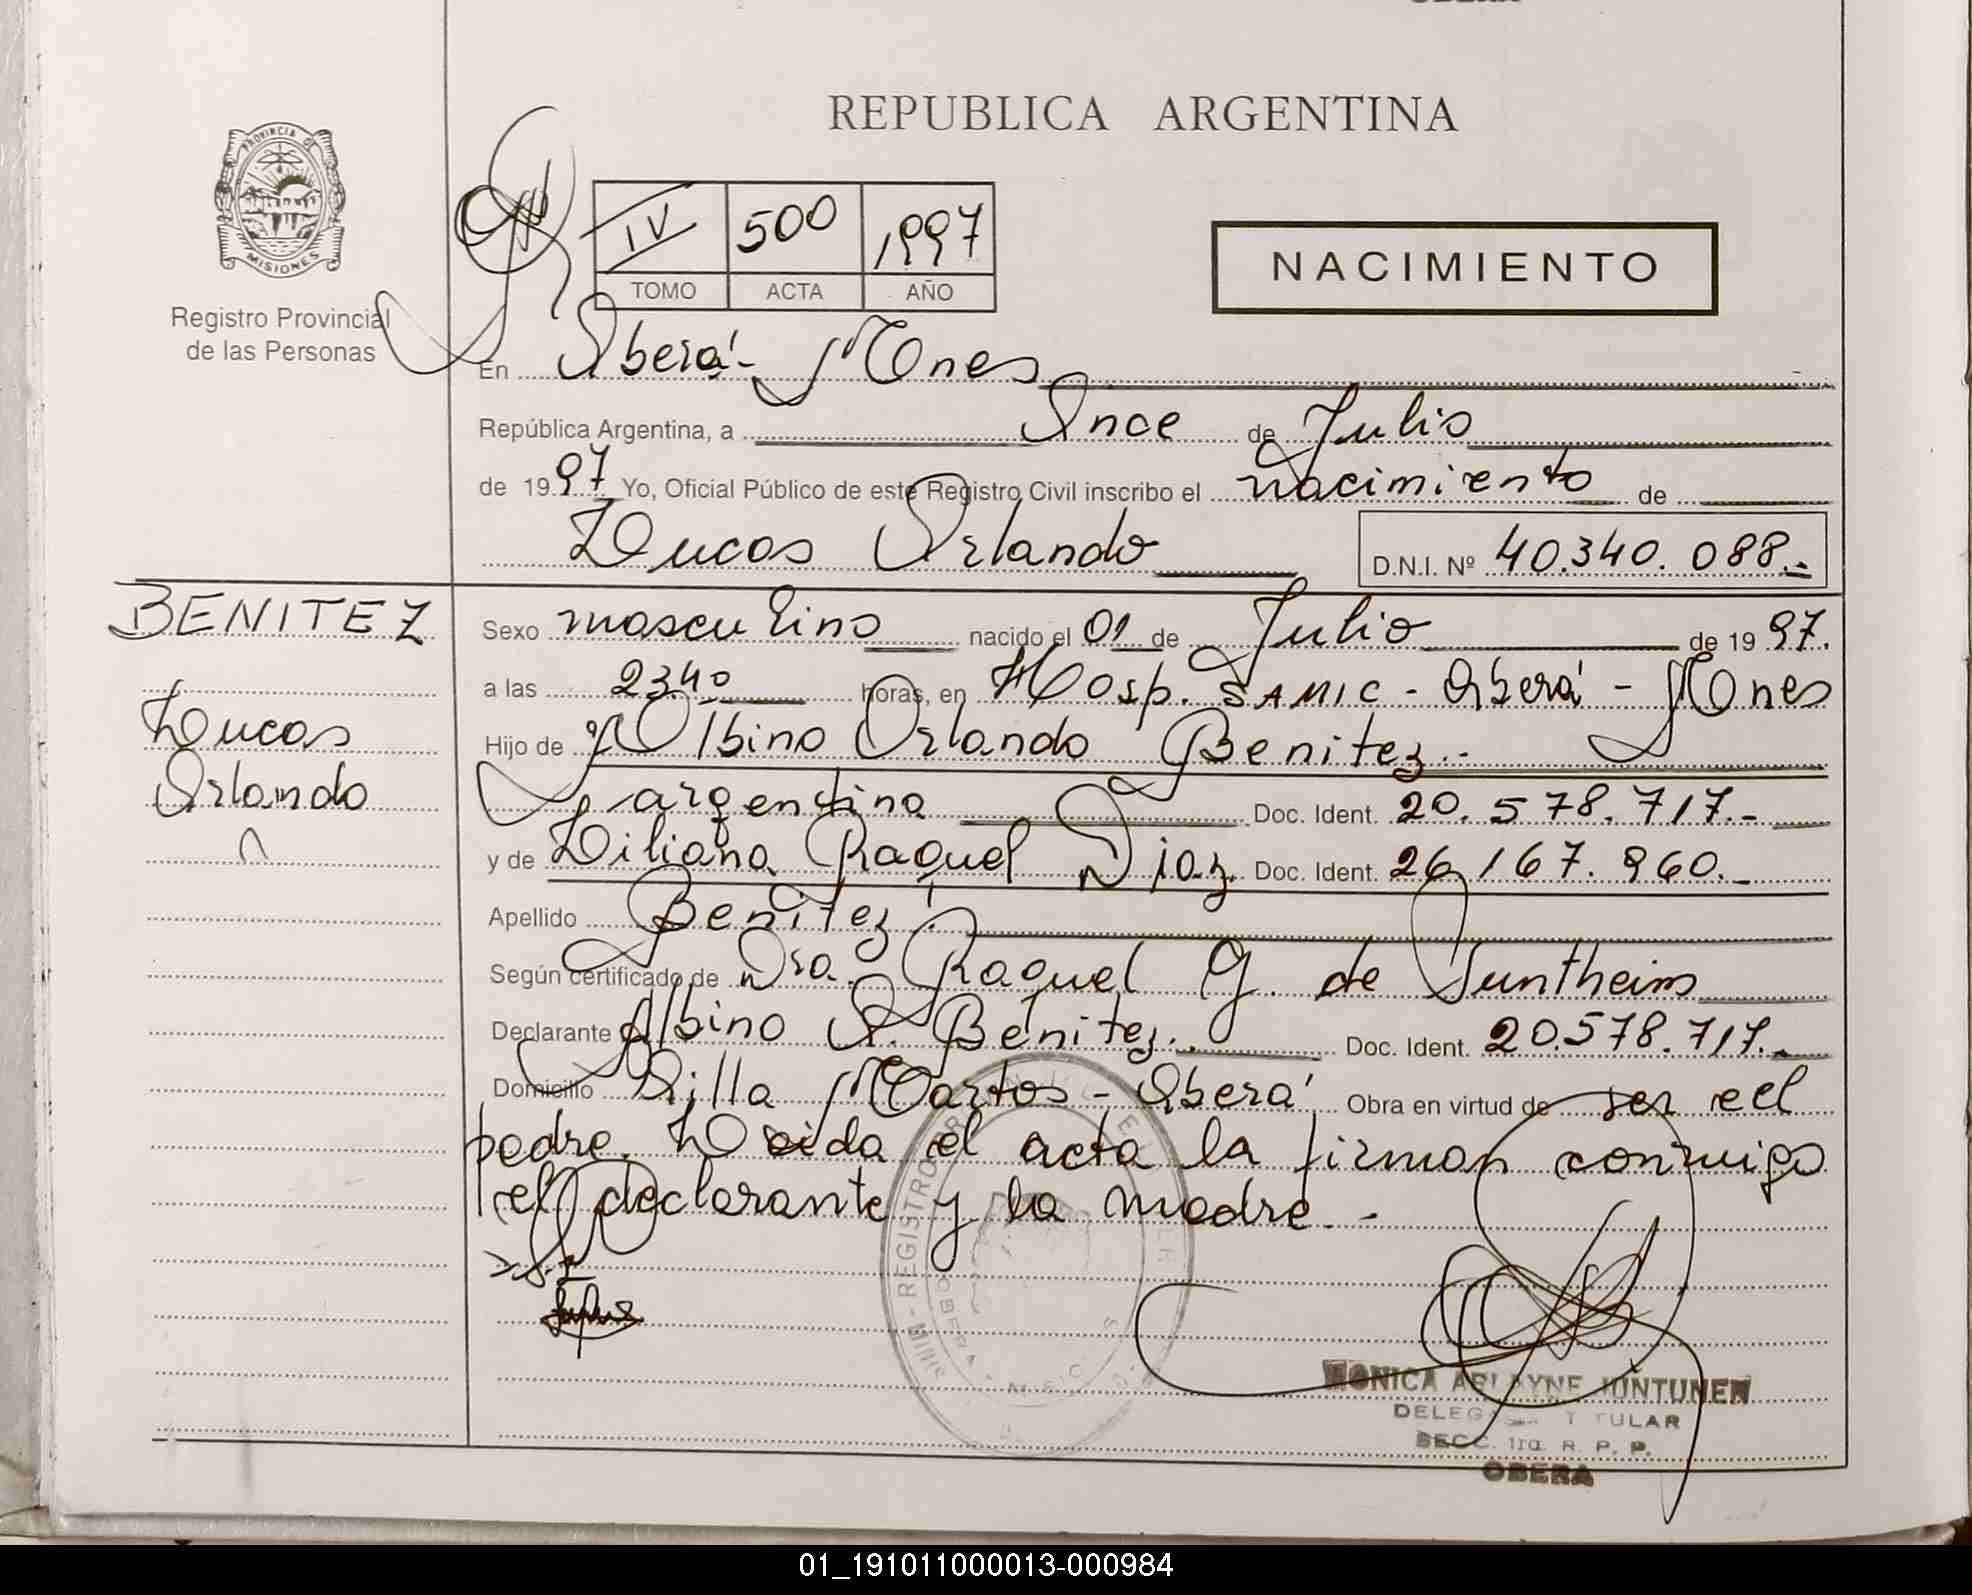 REPUBLICA ARGENTINA
PROVINCIA DE
MISIONES
Registro Provincial
de las Personas
IV 500 1997
TOMO ACTA AÑO
NACIMIENTO
En Oberá - Mnes
República Argentina, a Once de Julio
de 1997 Yo, Oficial Público de este Registro Civil inscribo el nacimiento de
Lucas Orlando D.N.I. Nº 40.340.088.-
BENITEZ
Lucas
Orlando
Sexo masculino nacido el 01 de Julio de 1997.
a las 23,40 horas, en Hosp. SAMIC - Oberá - Mnes
Hijo de Albino Orlando Benitez.-
argentina Doc. Ident. 20.578.717.-
y de Liliana Raquel Diaz. Doc. Ident. 26.167.960.-
Apellido Benitez.
Según certificado de Dra. Raquel G. de Suntheim
Declarante Albino O. Benitez.. Doc. Ident. 20.578.717.-
Domicilio Villa Martos - Oberá Obra en virtud de ser el
padre. Leida el acta la firman conmigo
el declarante y la madre.-
MONICA ARLAYNE JUNTUNEN
DELEGADA TITULAR
SECC. 1ra. R. P. P.
OBERA
01_191011000013-000984